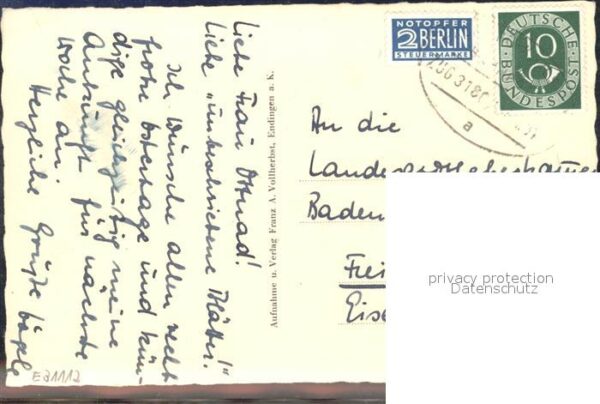 Liebe Frau Ostnad!
Liebe „umbschriebene Blätter“!
Ich wünsche allen recht
frohe Ostertage und kün-
dige gleichzeitig meine
Ankunft für nächste
Woche an.
Herzliche Grüße
Aufnahme u. Verlag Franz A. Vollherbst, Endingen a. K.
NOTOPFER
2 BERLIN
STEUERMARKE
DEUTSCHE BUNDESPOST
10
ZUG 318
a
An die
Baden
Frei
Eise
privacy protection
Datenschutz
E31112